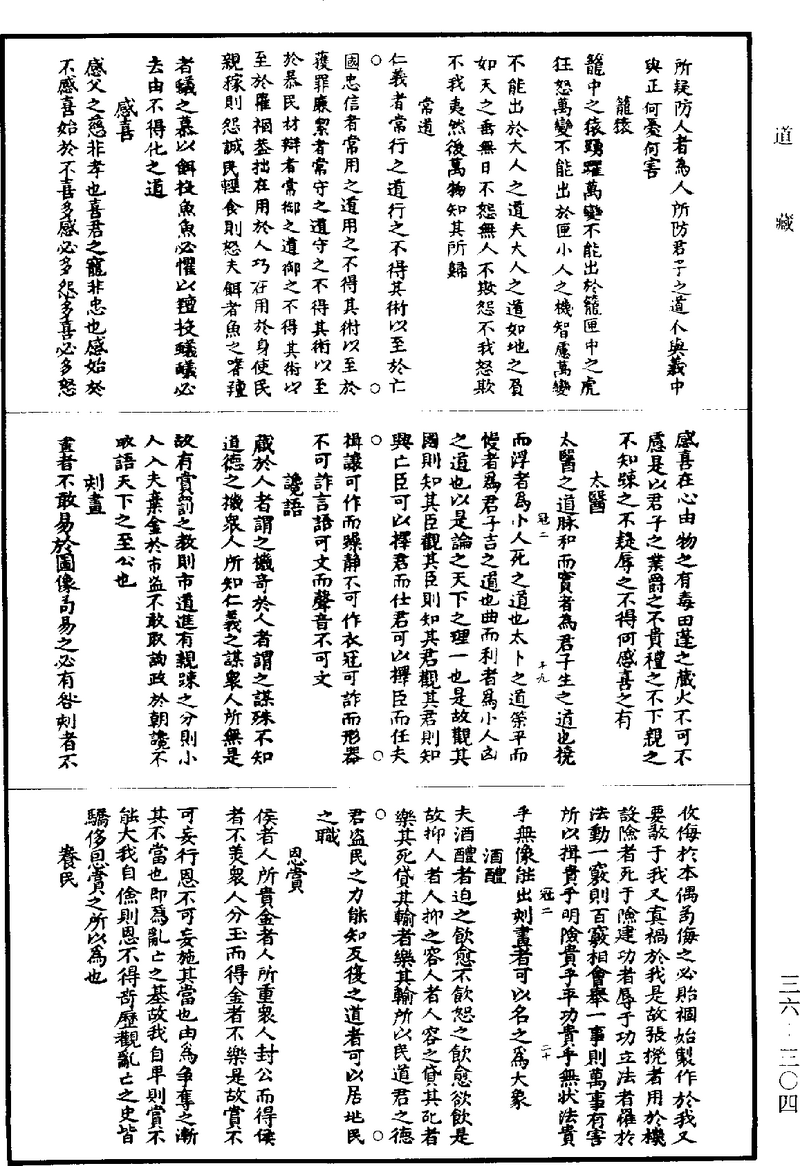 道藏
所疑防人者為人所防君子之道仆與義中
與正何憂何害
籠猿
籠中之猿踴躍萬變不能出於籠匣中之虎
狂怒萬變不能出於匣小人之機智慮萬變
不能出於大人之道夫大人之道如地之負
如天之垂無日不怨無人不欺怨不我怒欺
不我夷然後萬物知其所歸
常道
仁義者常行之道行之不得其術以至於亡
國忠信者常用之道用之不得其術以至於
獲罪廉潔者常守之道守之不得其術以至
於暴民材辯者常御之道御之不得其術以
至於罹禍蓋拙在用於人巧在用於身使民
親稼則怨誡民輕食則怒夫餌者魚之嗜羶
者蟻之慕以餌投魚魚必懼以羶投蟻蟻必
去由不得化之道
感喜
感父之慈非孝也喜君之寵非忠也感始於
不感喜始於不喜多感必多怨多喜必多怒
感喜在心由物之有毒由蓬之藏火不可不
慮是以君子之業爵之不貴禮之不下親之
不知疎之不疑辱之不得何感喜之有
太醫
太醫之道脉和而實者為君子生之道也撓
而浮者為小人死之道也太卜之道策平而
冠二
十九
慢者為君子吉之道也曲而利者為小人凶
之道也以是論之天下之理一也是故觀其
國則知其臣觀其臣則知其君觀其君則知
興亡臣可以擇君而仕君可以擇臣而任夫
揖讓可作而躁靜不可作衣冠可詐而形器
不可詐言語可文而聲音不可文
讒語
藏於人者謂之機奇於人者謂之謀殊不知
道德之機衆人所知仁義之謀衆人所無是
故有賞罰之教則市道進有親疎之分則小
人入夫棄金於市盜不敢取詢政於朝讒不
敢語天下之至公也
刻畫
畫者不敢易於圖像苟易之必有咎刻者不
敢侮於本偶苟侮之必貽禍始製作於我又
要敬于我又寘禍於我是故張機者用於機
設險者死于險建功者辱于功立法者罹於
法動一竅則百竅相會舉一事則萬事有害
所以揖貴乎明險貴乎平功貴乎無狀法貴
冠二
二十
乎無像能出刻畫者可以名之為大象
酒醴
夫酒醴者迫之飲愈不飲怨之飲愈欲飲是
故抑人者人抑之容人者人容之貸其死者
樂其死貸其輸者樂其輸所以民道君之德
君盜民之力能知反復之道者可以居地民
之職
恩賞
侯者人所貴金者人所重衆人封公而得侯
者不美衆人分玉而得金者不樂是故賞不
可妄行恩不可妄施其當也由為爭奪之漸
其不當也即為亂亡之基故我自卑則賞不
能大我自儉則恩不得奇歷觀亂亡之史皆
驕侈恩賞之所以為也
養民
三六-三〇四